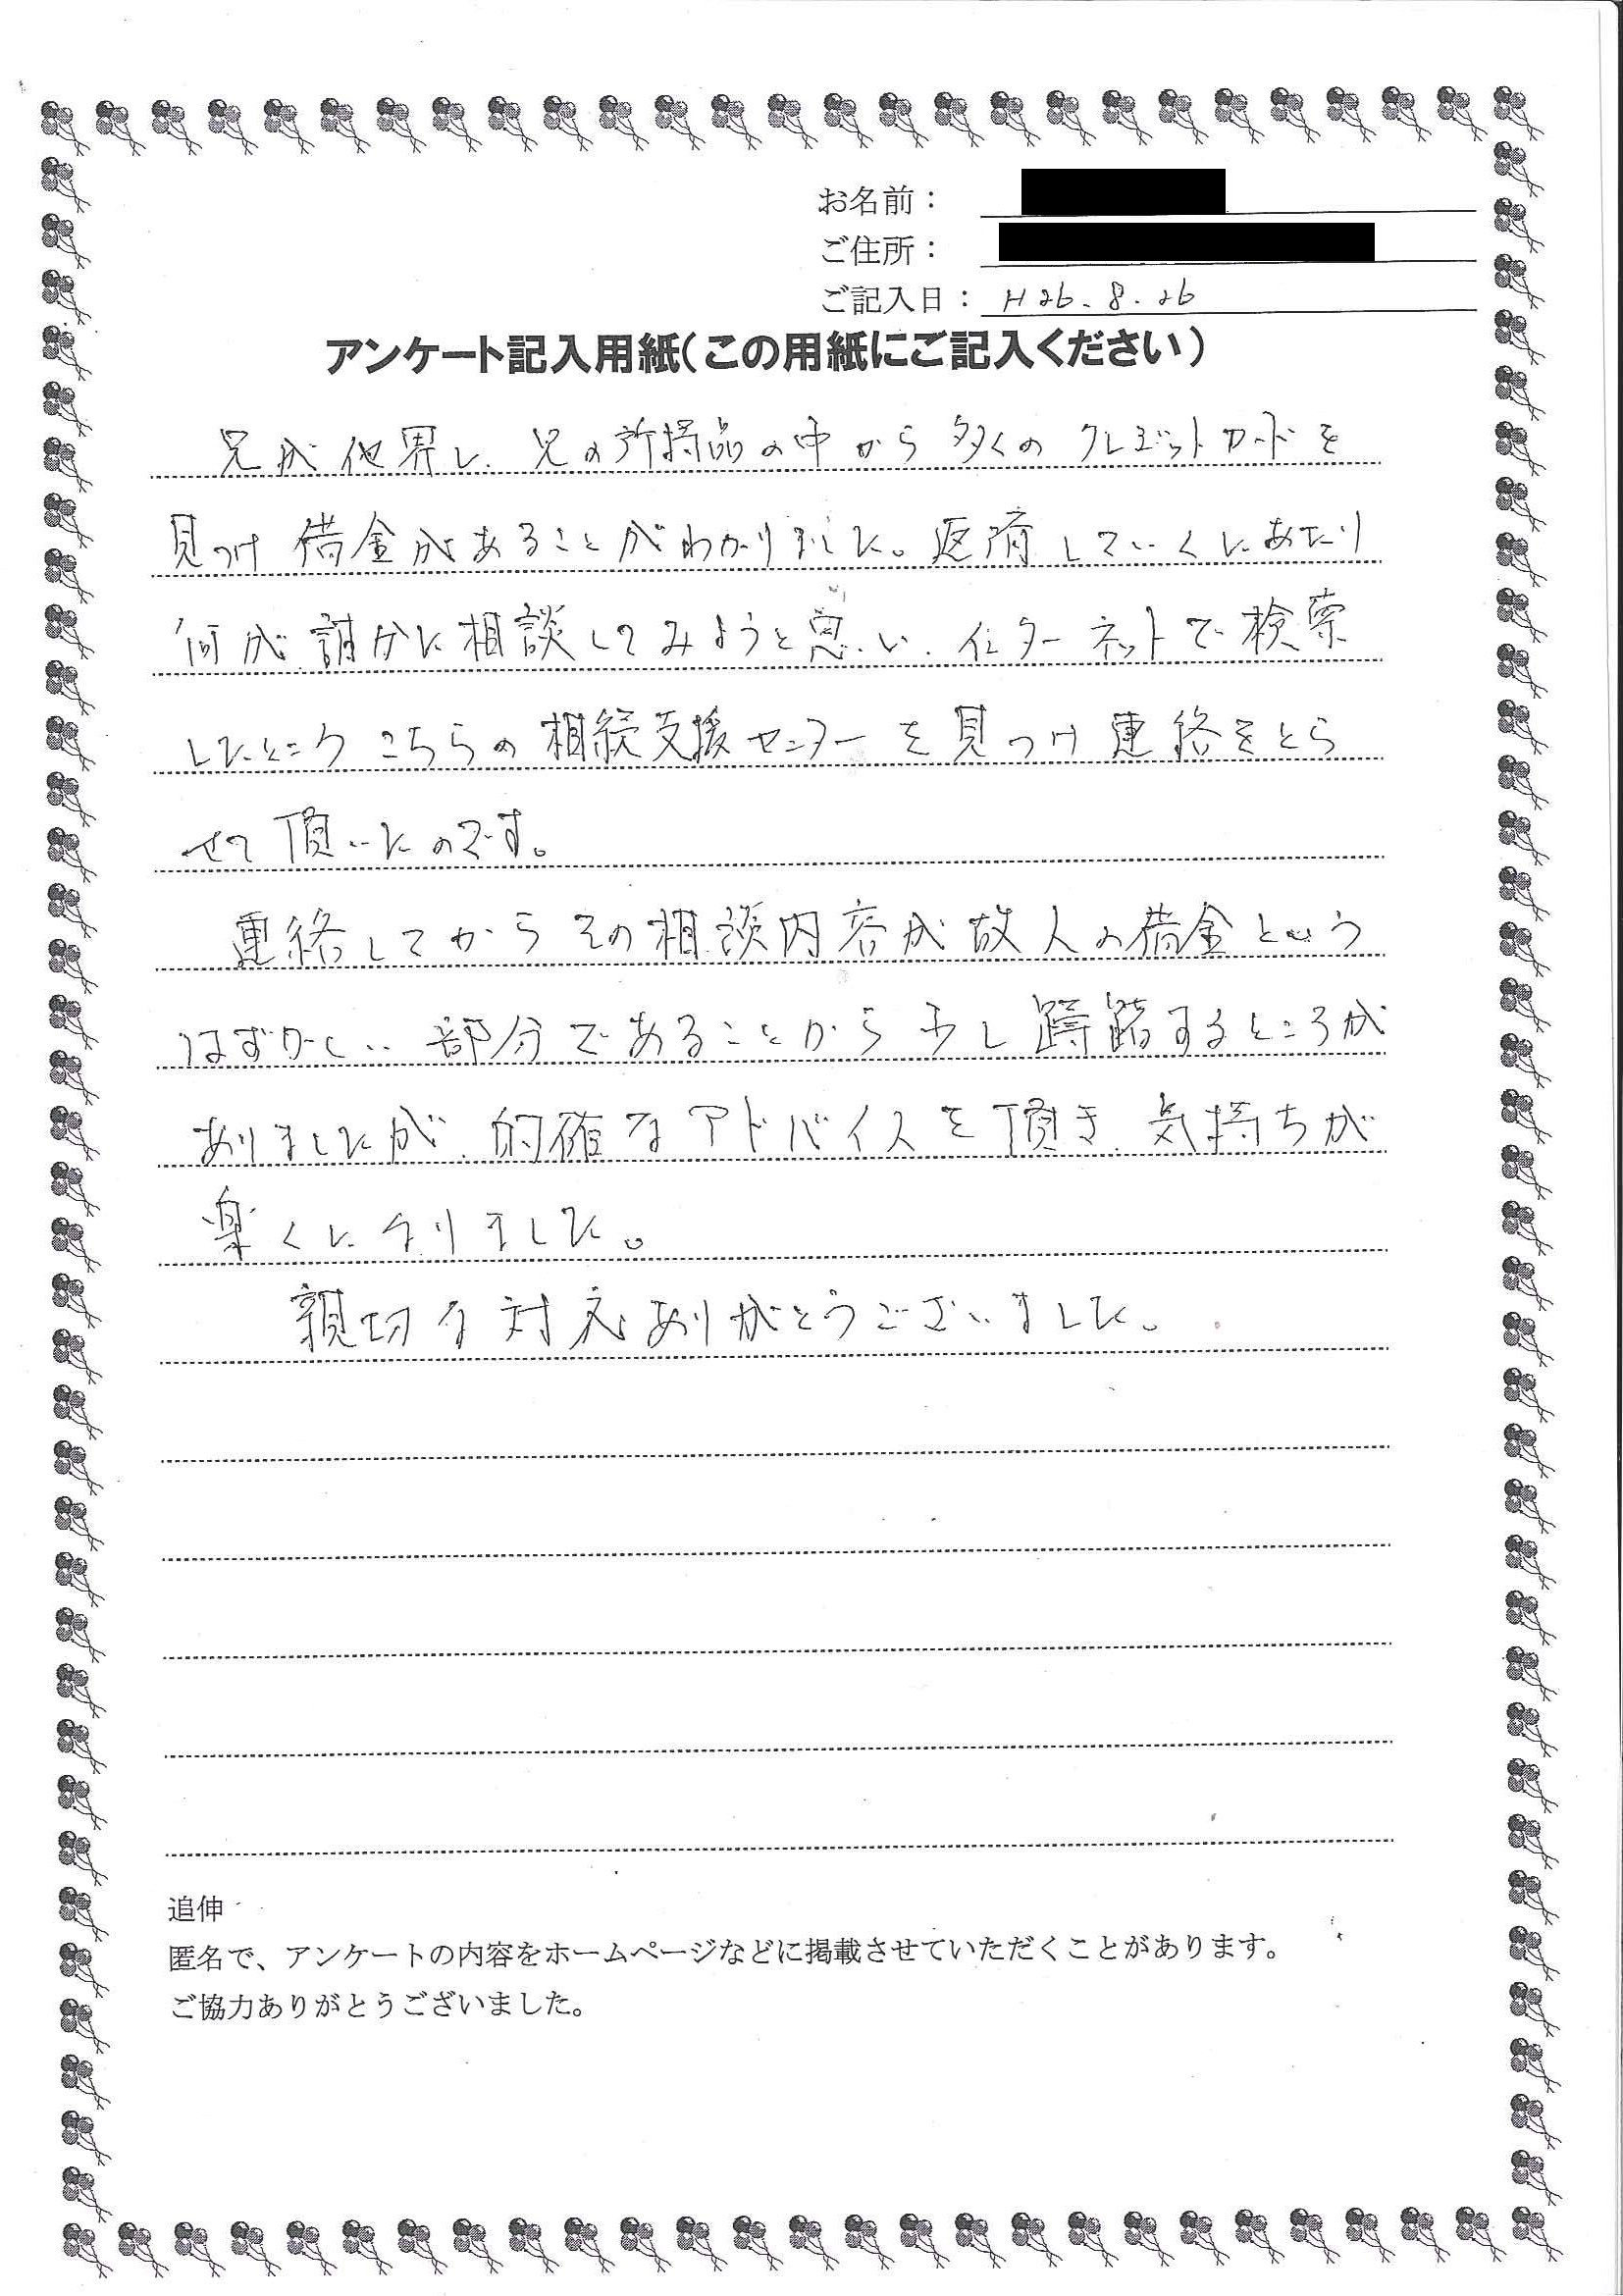 お名前：
ご住所：
ご記入日： H26.8.26
アンケート記入用紙（この用紙にご記入ください）
兄が他界し、兄の所持品の中から多くのクレジットカードを
見つけ借金があることがわかりました。返済していくにあたり
何か誰かに相談してみようと思い、インターネットで検索
したところこちらの相続支援センターを見つけ連絡をとら
せて頂いたのです。
連絡してからその相談内容が故人の借金という
はずかしい部分であることから少し躊躇するところが
ありましたが、的確なアドバイスを頂き、気持ちが
楽くになりました。
親切な対応ありがとうございました。
追伸
匿名で、アンケートの内容をホームページなどに掲載させていただくことがあります。
ご協力ありがとうございました。